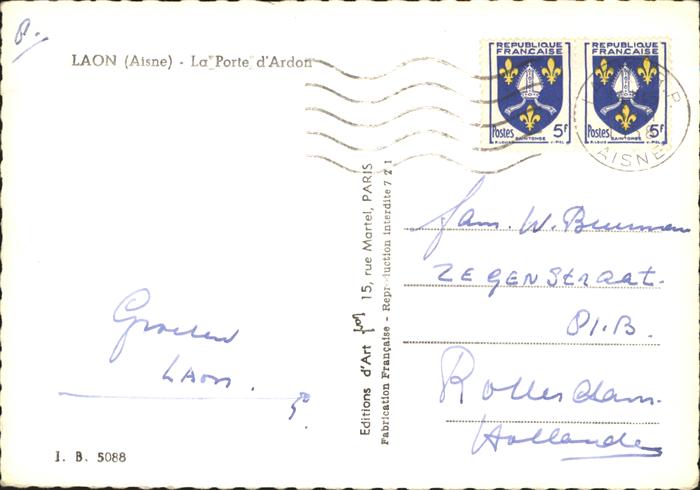 LAON (Aisne) - La Porte d'Ardon
RÉPUBLIQUE FRANÇAISE
Postes 5F
SAINTONGE
RÉPUBLIQUE FRANÇAISE
Postes 5F
SAINTONGE
AISNE
Editions d'Art 15, rue Martel, PARIS
Fabrication Française - Reproduction interdite 7 2 1
Fam. W. Buurman
ZEGENSTRAAT.
Rotterdam.
Hollande
Groeten
LAON.
I. B. 5088